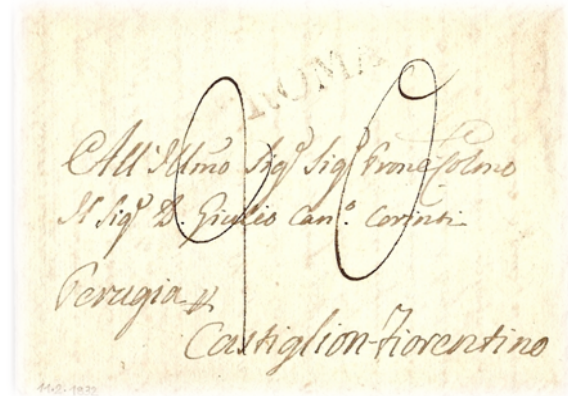 ROMA
90
All'Illmo Sigr Sigr Prone Colmo
Il Sigr D. Giulio Cano. Corinti
Perugia
Castiglion-Fiorentino
11·2·1832